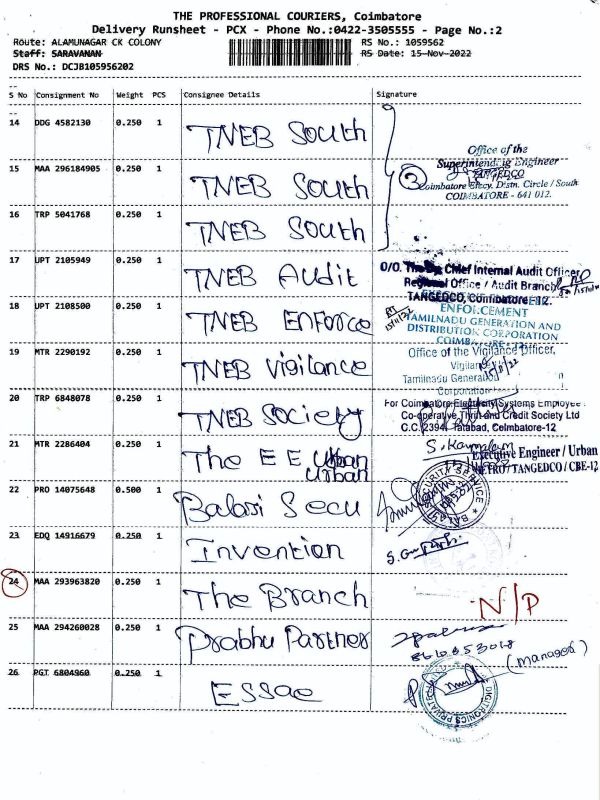 THE PROFESSIONAL COURIERS, Coimbatore
Delivery Runsheet - PCX - Phone No.:0422-3505555 - Page No.:2
Route: ALAMUNAGAR CK COLONY RS No.: 1059562
Staff: SARAVANAN RS Date: 15-Nov-2022
DRS No.: DCJB105956202
S No Consignment No Weight PCS Consignee Details Signature
14 DDG 4582130 0.250 1 TNEB South
Office of the
Superintending Engineer
15 MAA 296184905 0.250 1 TNEB South
3 TANGEDCO
Coimbatore Elecy. Distn. Circle / South
COIMBATORE - 641 012.
16 TRP 5041768 0.250 1 TNEB South
17 UPT 2105949 0.250 1 TNEB Audit
O/O. The Chief Internal Audit Officer
Regional Office / Audit Branch
TANGEDCO, Coimbatore-12.
18 UPT 2108500 0.250 1 TNEB Enforce
15/11/22
ENFORCEMENT
TAMILNADU GENERATION AND
DISTRIBUTION CORPORATION
COIMBATORE
19 MTR 2290192 0.250 1 TNEB Vigilance
Office of the Vigilance Officer,
Vigilance
Tamilnadu Generation
Corporation
20 TRP 6848078 0.250 1 TNEB Society
For Coimbatore Electricity Systems Employee
Co-operative Thrift and Credit Society Ltd
C.C. 2394, Tatabad, Coimbatore-12
21 MTR 2286404 0.250 1 The E E Urban
Urban
S. Kamalam
Executive Engineer / Urban
METRO/TANGEDCO/CBE-12
22 PRO 14075648 0.500 1 Balaji Secu
SECURITY SERVICE
BALAJI
23 EDQ 14916679 0.250 1 Invention
24 MAA 293963820 0.250 1 The Branch
N/P
25 MAA 294260028 0.250 1 Prabhu Partner
26 PGT 6804960 0.250 1 ESSae
(Manager)
DIGITRONICS PRIVATE